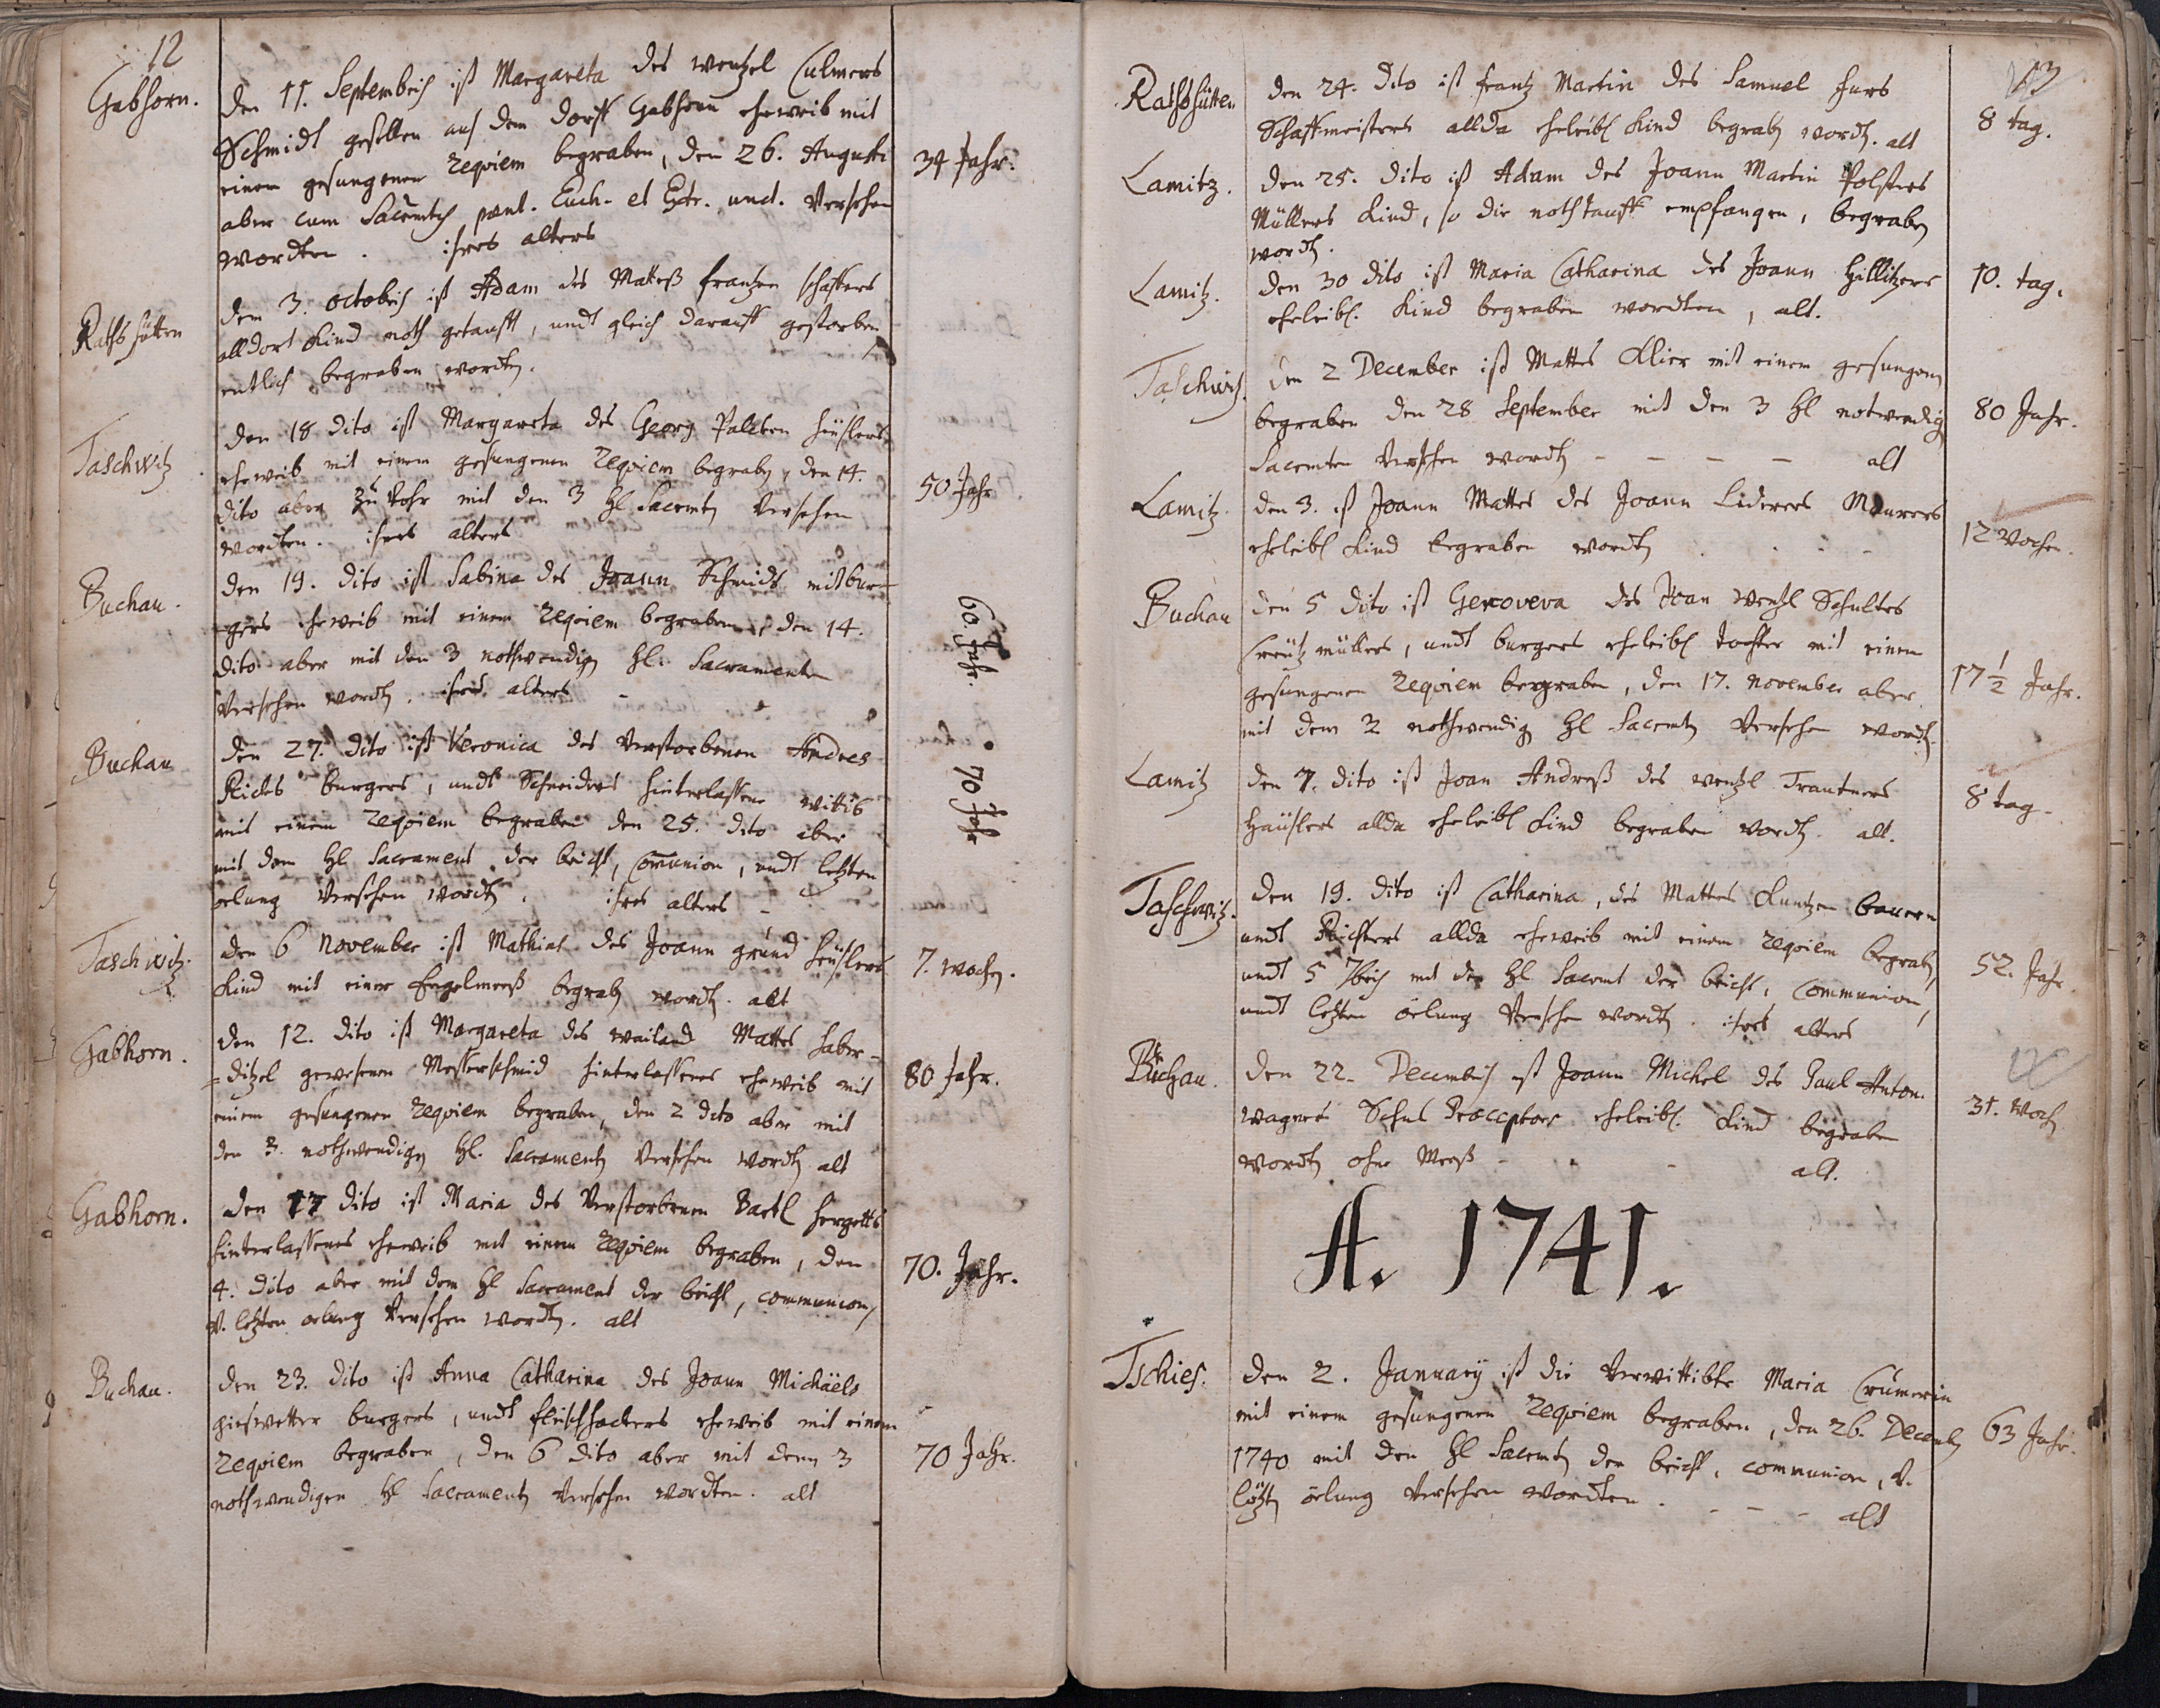 12
Gabhorn.
Den 11. Septembris ist Margareta des wentzel Culmers
Schmidt gesellen aus dem dorff Gabhorn eheweib mit
einem gesungenen Requiem begraben, den 26. Augusti
aber cum Sacrmtis pnt. Euch. et Extr. unct. Versehen
wordten. ihres alters
34 Jahr.
Rathshütten
Den 3. octobris ist Adam des Matteß frantzen schaffers
alldort Kind noth getaufft, undt gleich darauff gestorben
entlich begraben wordten.
Taschwitz
Den 18 dito ist Margareta des Georg häuslers
eheweib mit einem gesungenen Requiem begraben, den 14.
dito aber zu Vohr mit den 3 hl Sacrmten Versehen
wordten. ihres alters
50 Jahr
Buchau.
Den 19. dito ist Sabina des Joann Schmidt mitbur-
gers eheweib mit einem Requiem begraben, den 14.
dito aber mit den 3 nothwendigen hl. Sacramenten
Versehen wordten. ihres alters -
60 Jahr.
Buchau
Den 27. dito ist Veronica des Verstorbenen Andres
burgers, undt Schneiders hinterlassene wittib
mit einem Requiem begraben den 25. dito aber
mit dem hl Sacrament der beicht, Comunion, undt letzten
oelung Versehen wordten. ihres alters -
70 Jahr
Taschwitz.
Den 6 November ist Mathias des Joann grund häuslers
Kind mit einer Engelmeeß begraben wordten. alt
7. wochen.
Gabhorn.
Den 12. dito ist Margareta des weiland Mattes haber-
=ditzel gewesenen Messerschmid hinterlassenes eheweib mit
einem gesungenen Requiem begraben, den 2 dito aber mit
den 3. nothwendigen hl. Sacramenten Versehen wordten alt
80 Jahr.
Gabhorn.
Den 17 dito ist Maria des Verstorbenen Bartl hergetts
hinterlassenes eheweib mit einem Requiem begraben, den
4. dito aber mit dem hl Sacrament der beicht, communion,
V. letzten oelung Versehen wordten. alt
70. Jahr.
Buchau.
Den 23. dito ist Anna Catharina des Joann Michäels
burgers, undt fleischhackers eheweib mit einem
Requiem begraben, den 6 dito aber mit denn 3
nothwendigen hl Sacramenten Versehen wordten. alt
70 Jahr.
13
Rathshütten
Den 24. dito ist frantz Martin des Samuel
Schaffmeisters allda eheleibl Kind begraben wordten. alt
8 tag.
Lamitz.
Den 25. dito ist Adam des Joann Martin Polsters
Müllers Kind, so die nothtauff empfangen, begraben
wordten.
Lamitz.
Den 30 dito ist Maria Catharina des Joann Hillitzers
eheleibl. Kind begraben wordten, alt.
10. tag.
Taschwitz.
Den 2 December ist Mattes Klier mit einem gesungenen
begraben den 28 September mit den 3 hl notwendigen
Sacrmten Versehen wordten - - - - alt
80 Jahr.
Lamitz.
Den 3. ist Joann Mattes des Joann Liderers Maurers
eheleibl Kind begraben wordten
12 Wochen.
Buchau
Den 5 dito ist Genoveva des Joan wentzl Schultes
Creutz müllers, undt burgers eheleibl tochter mit einem
gesungenen Requiem begraben, den 17. November aber
mit dem 2 nothwendigen hl Sacrmten Versehen wordten.
17 1/2 Jahr.
Lamitz
Den 7. dito ist Joan Andreß des wentzl Trautners
Häuslers allda eheleibl Kind begraben wordten. alt.
8 tag
Taschwitz.
Den 19. dito ist Catharina, des Mattes Kuntzen bauern
undt Richters allda eheweib mit einem Requiem begraben,
undt 5 7bris mit den hl Sacrmt der beicht, Communion,
undt letzten öelung Versehen wordten. ihres alters
52. Jahr.
Buchau.
Den 22. Decembris ist Joann Michel des Paul Anton
wagners Schul Praeceptors eheleibl. Kind begraben
wordten ohne Meeß - - alt.
31. Woch
A. 1741.
Tschies.
Den 2. January ist die Verwittibte Maria Crumerin
mit einem gesungenen Requiem begraben, den 26. Decembris
1740 mit den hl Sacrmten der beicht, communion, V.
lötzten öelung Versehen wordten. - - - alt
63 Jahr.